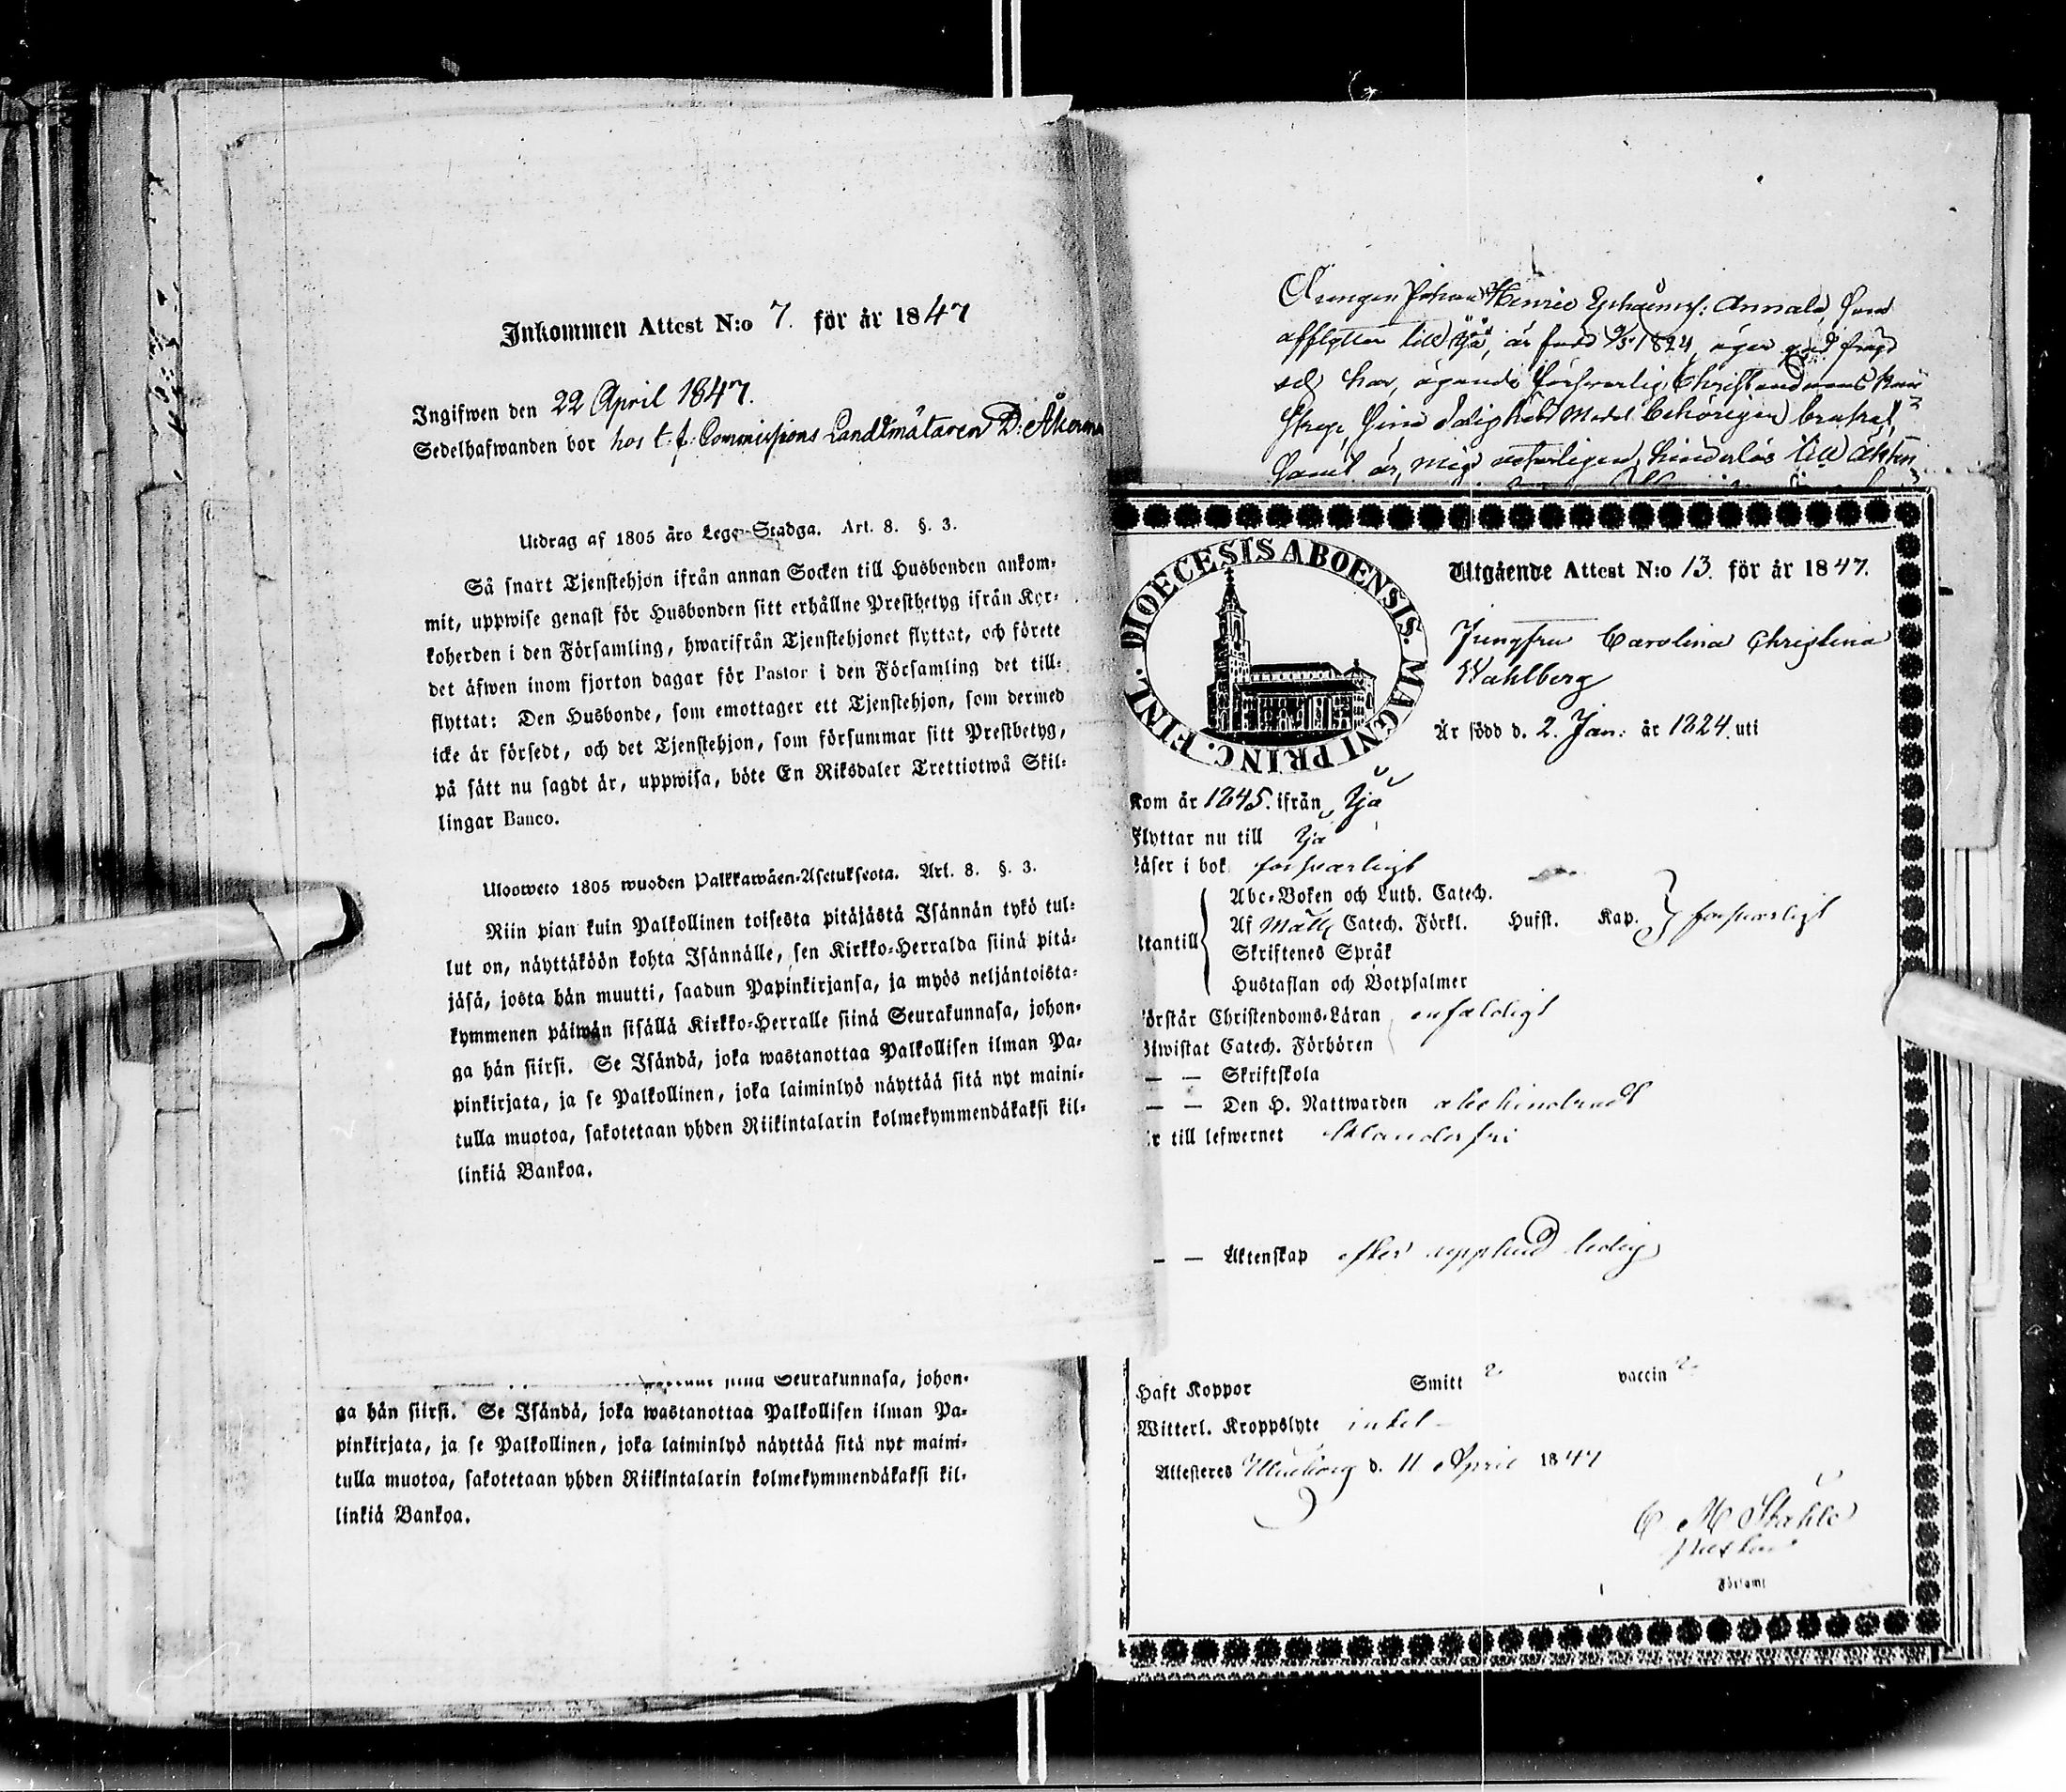 Inkommen Attest N:o 7. för år 1847
Ingifwen den 22 April 1847.
Sedelhafwanden bor hos t. f. Commissions Landtmätaren D: Åkerma
Utdrag af 1805 års Lego-Stadga. Art. 8. §. 3.
Så snart Tjenstehjon ifrån annan Socken till Husbonden ankom-
mit, uppwise genast för Husbonden sitt erhållne Prestbetyg ifrån Kyr-
koherden i den Församling, hwarifrån Tjenstehjonet flyttat, och förete
det äfwen inom fjorton dagar för Pastor i den Församling det till-
flyttat: Den Husbonde, som emottager ett Tjenstehjon, som dermed
icke är försedt, och det Tjenstehjon, som försummar sitt Prestbetyg,
på sätt nu sagdt är, uppwisa, böte En Riksdaler Trettiotwå Skil-
lingar Banco.
Ulosweto 1805 wuoden Palkkawäen-Asetuksesta. Art. 8. §. 3.
Niin pian kuin Palkollinen toisesta pitäjästä Isännän tykö tul-
lut on, näyttäköön kohta Isännälle, sen Kirkko-Herralda siinä pitä-
jäsä, josta hän muutti, saadun Papinkirjansa, ja myös neljäntoista-
kymmenen päiwän sisällä Kirkko-Herralle siinä Seurakunnasa, johon-
ga hän siirsi. Se Isändä, joka wastanottaa Palkollisen ilman Pa-
pinkirjata, ja se Palkollinen, joka laiminlyö näyttää sitä nyt maini-
tulla muotoa, sakotetaan yhden Riikintalarin kolmekymmendäkaksi kil-
linkiä Bankoa.
Seurakunnasa, johon-
ga hän siirsi. Se Isändä, joka wastanottaa Palkollisen ilman Pa-
pinkirjata, ja se Palkollinen, joka laiminlyö näyttää sitä nyt maini-
tulla muotoa, sakotetaan yhden Riikintalarin kolmekymmendäkaksi kil-
linkiä Bankoa.
Drengen Johan Henric Annala, som
afflyttar till Ijå, är född 1824, äger god frejd
har, ägande försvarlig Christendoms
sine behörigen
samt är, mig veterligen, hinderlös till äkten
DIOECESIS ABOENSIS. MAGNI PRINC. FINL.
Utgående Attest N:o 13. för år 1847.
Jungfru Carolina Christina
Wahlberg
Är född d. 2. Jan: år 1824. uti
Kom år 1845. ifrån Ijå
Flyttar nu till Ijå
Läser i bok försvarligt
Abc-Boken och Luth. Catech.
Utantill Af Möll Catech. Förkl. Hufst. Kap. försvarligt
Skriftenes Språk
Hustaflan och Botpsalmer
Förstår Christendoms-Läran enfaldigt
Biwistat Catech. Förhören
— — Skriftskola
— — Den H. Nattwarden obehindradt
Är till lefwernet klanderfri
— — Äktenskap efter uppbud ledig
Haft Koppor Smitt vaccin
Witterl. Kroppslyte intet
Attesteres Uleåborg d. 11 April 1847
C M Ståhle
Pastor
Församl